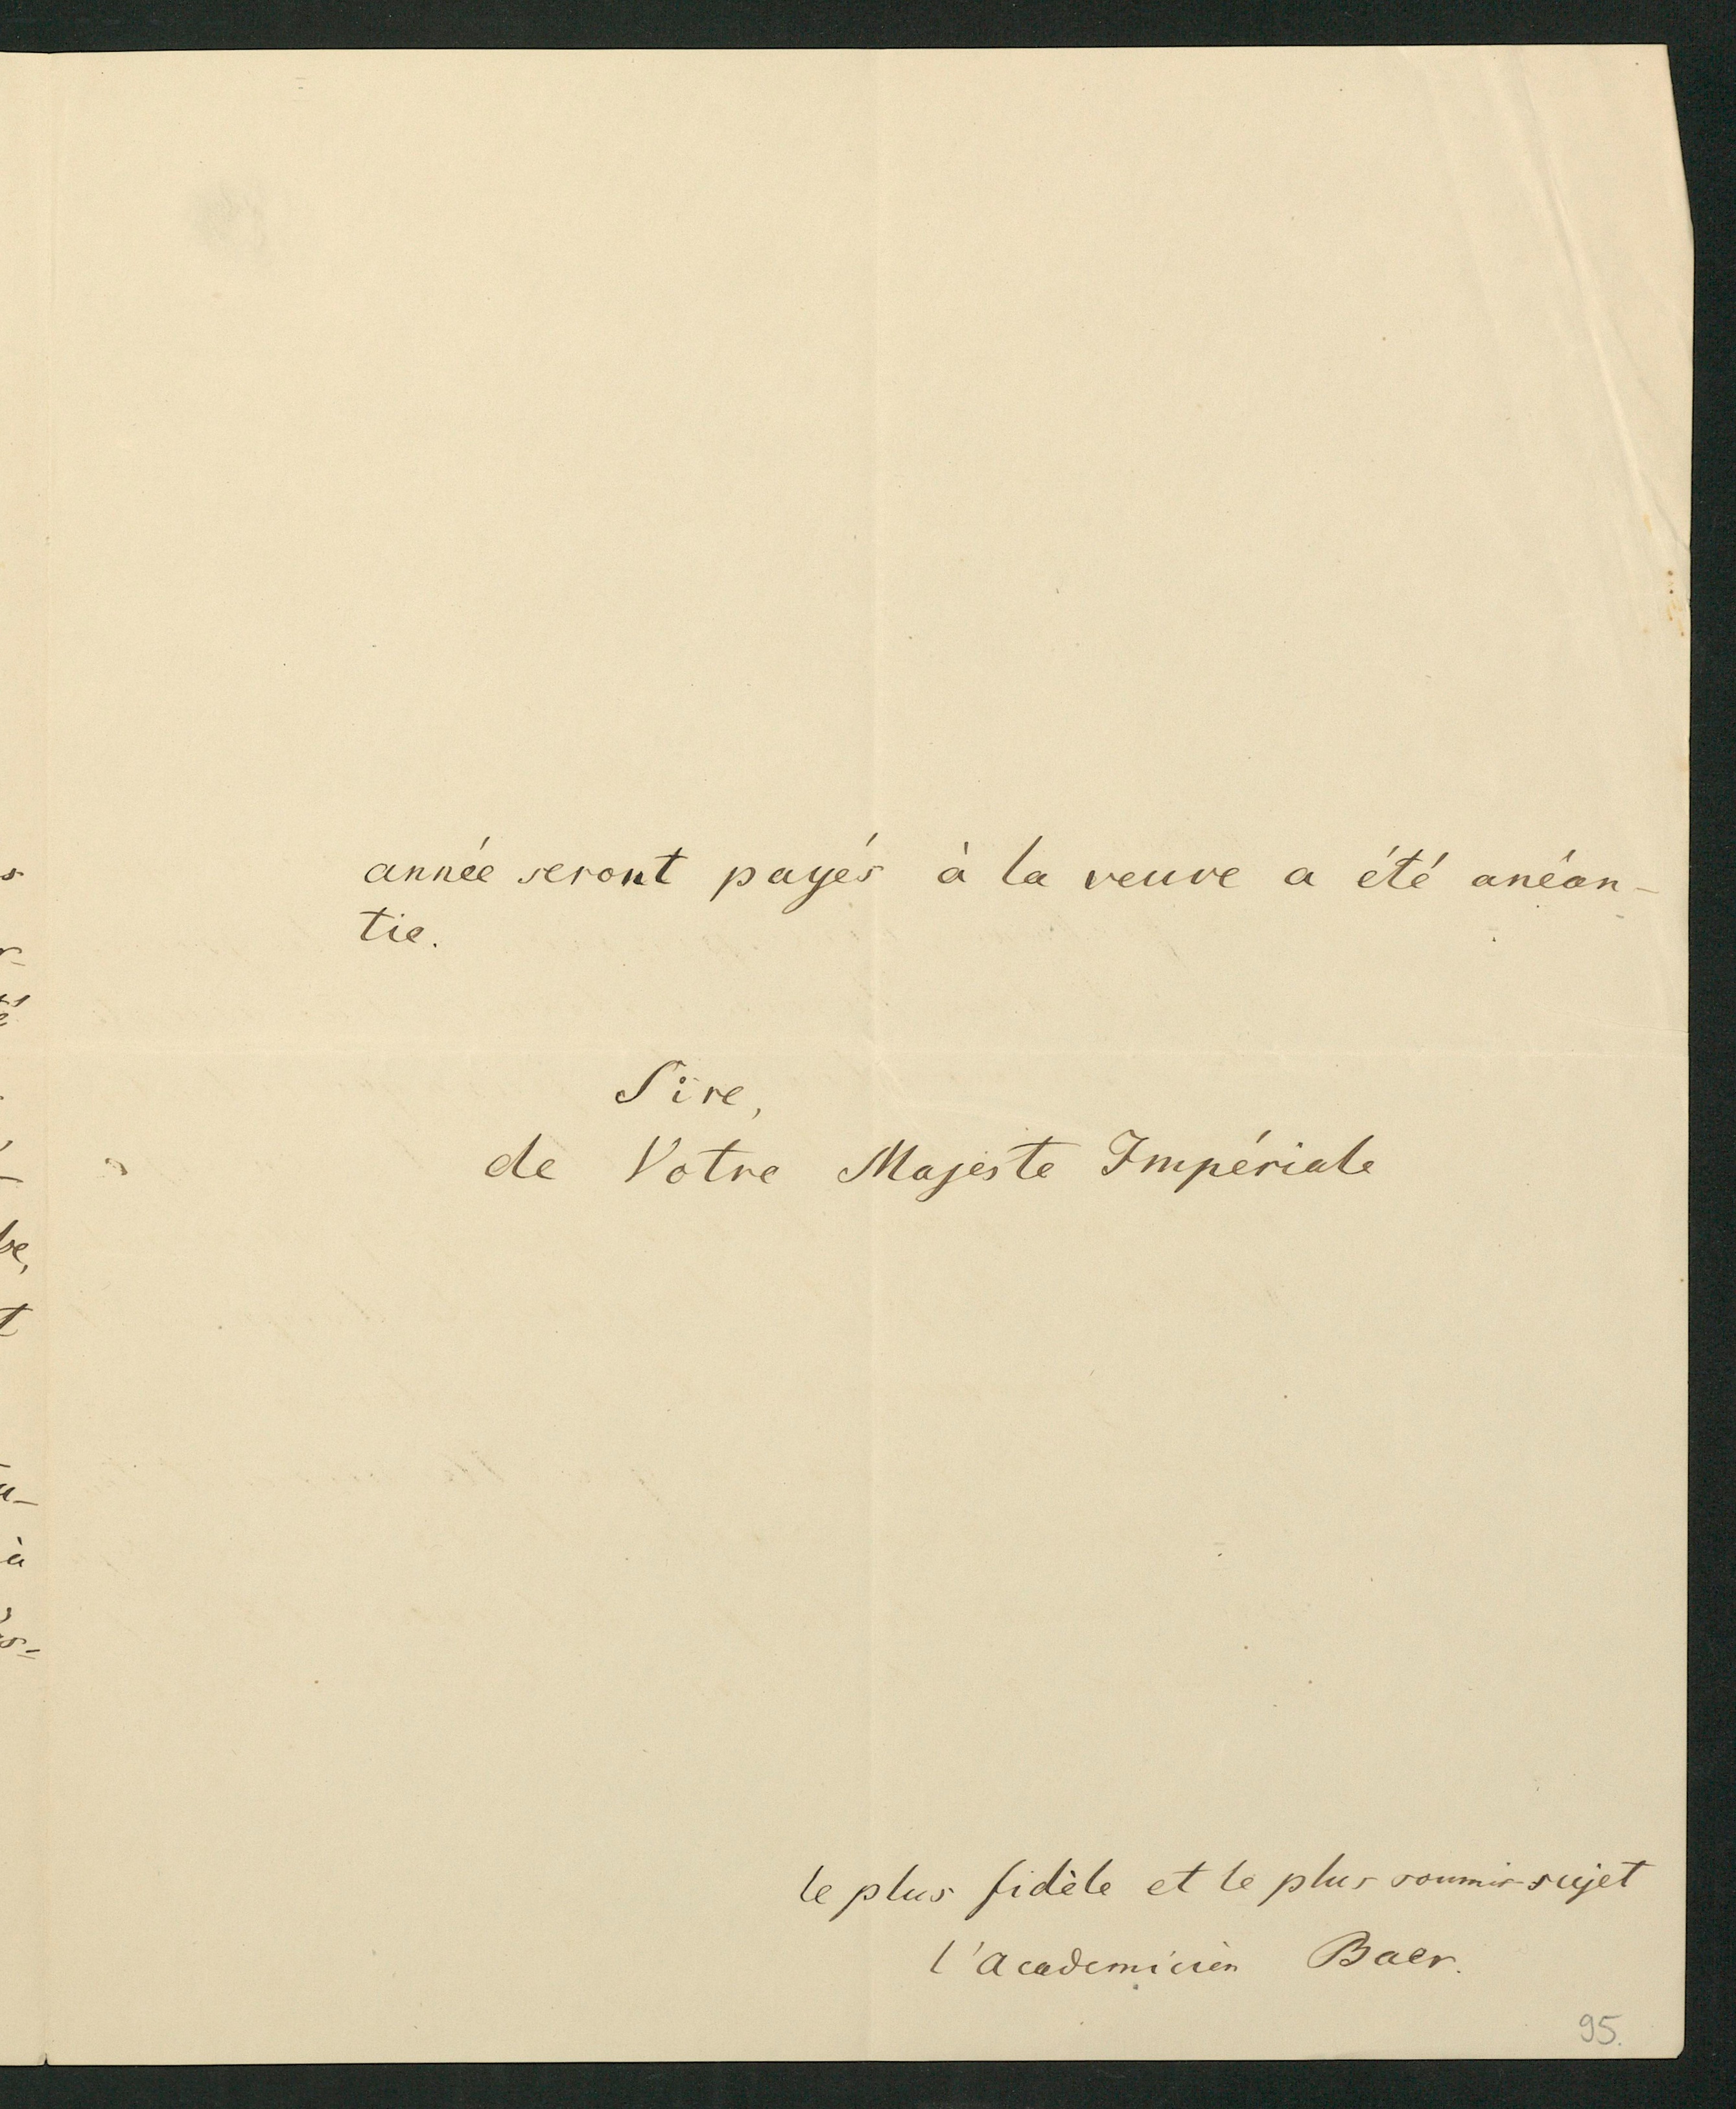 année seront payés à la veuve a été anéan-
tie.
Sire,
de Votre Majeste Impériale
le plus fidèle et le plus soumis sujet
l'Academicien Baer.
95.